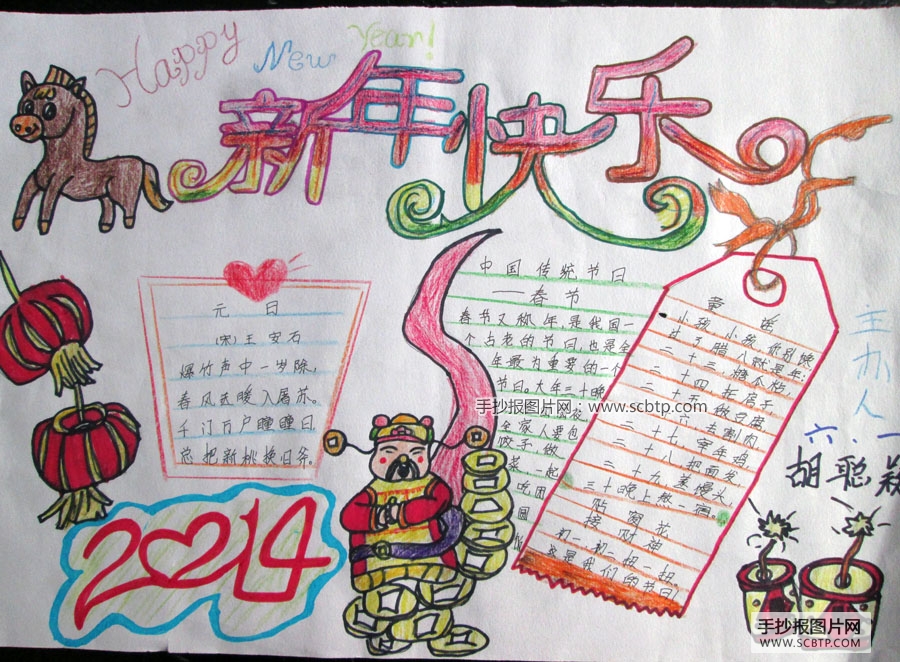 Happy New Year!
新年快乐
元日
(宋)王安石
爆竹声中一岁除,
春风送暖入屠苏。
千门万户曈曈日,
总把新桃换旧符。
2014
中国传统节日
——春节
春节又称年,是我国一
个古老的节日,也是全
年最为重要的一个
节日。大年三十晚
全家人要包
饺子做
菜一起
吃团
圆
饭
童谣
小孩小孩你别馋
过了腊八就是年;
二十三,糖瓜粘,
二十四,扫房子,
二十五,做豆腐
六去割肉
二十七,宰年鸡
二十八,把面发
二十九,蒸馒头,
三十晚上熬一宿。
贴窗花
接财神
初一初二扭一扭
这是我们的节日!
主办人
六.一
胡聪颖
手抄报图片网:www.scbtp.com
手抄报图片网
WWW.SCBTP.COM